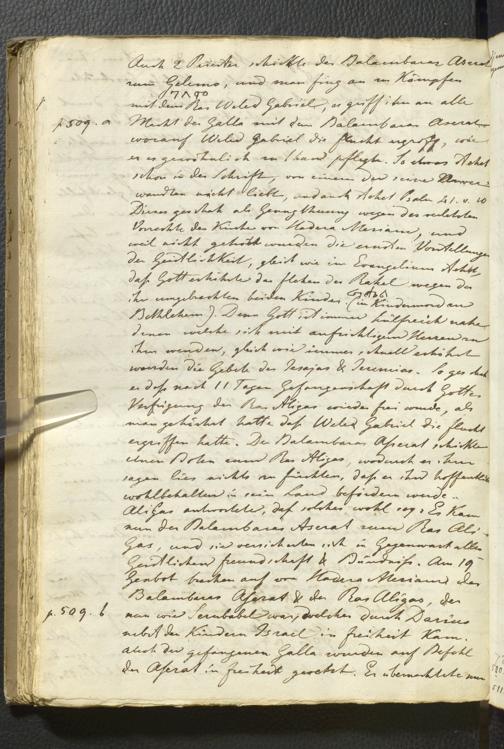 Auch 2 Priester schickte der Balambaras Aserat
zum Gelmo, und man fing an zu Kämpfen
mit dem Ras Weled Gabriel, es griff ihn an alle
p. 509. a Macht der Galla mit dem Balambaras Aserat
worauf Weled Gabriel die flucht ergriff, wie
er es gewöhnlich zu thun pflegte. So etwas
schon in der Schrift, von einem der seine
wandten nicht liebt, und auch Psalm 41. v. 10
Dieses geschah als Genugthuung wegen des
Vorrechte der Kirche von Hadera Meriam, und
weil nicht gehört wurden die ernsten Vorstellungen
der Geistlichkeit, gleich wie im Evangelium steht,
daß Gott erhörte das flehen der Rahel wegen der
ihr umgebrachten beiden Kinder. (im Kindermord zu
Bethlehem). Denn Gott ist immer hülfreich nahe
denen welche sich mit aufrichtigem Herzen an
ihn wenden, gleich wie immer schnell erhört
wurden die Gebete des Jesajas & Jeremias. So geschah
es daß nach 11 Tagen Gefangenschaft durch Gottes
Verfügung der Ras Aligas wieder frei wurde, als
man gehört hatte daß Weled Gabriel die flucht
ergriffen hatte. Der Balambaras Aserat schickte
einen Boten zum Ras Aligas, wodurch er ihm
sagen lies nichts zu fürchten, daß er ihn hoffentlich
wohlbehalten in sein Land befördern werde.
Aligas antwortete, daß solches wohl sey; Es kam
nun der Balambaras Aserat zum Ras Ali-
gas, und sie versicherten sich in Gegenwart aller
Geistlichen freundschaft & Bündniß. Am 19
Genbot brachen auf von Hadera Meriam der
Balambaras Aserat & der Ras Aligas, der
p. 509. b nun wie Serubabel war, welcher durch Darius
nebst den Kindern Israel in freiheit kam.
auch die gefangenen Galla wurden auf Befehl
des Aserat in freiheit gesetzt. Er übernachtete nun